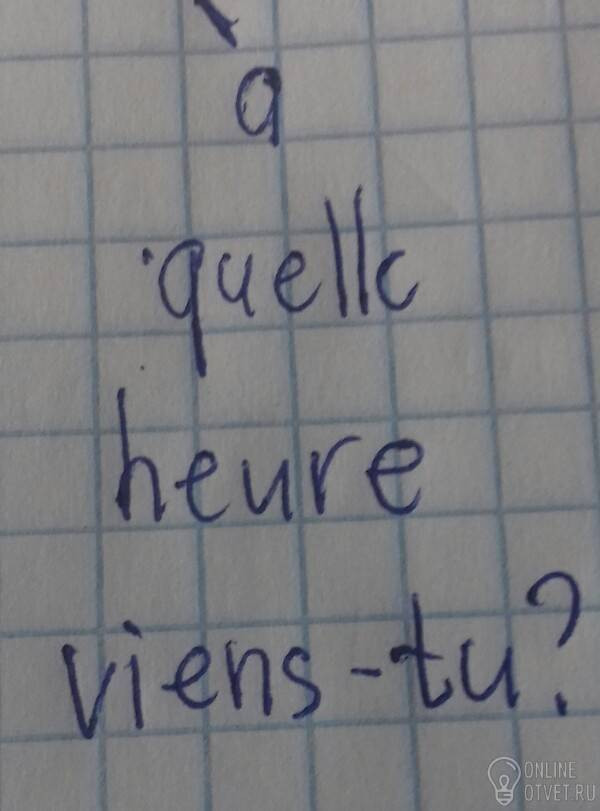 à
quelle
heure
viens-tu?
ONLINE
OTVET.RU